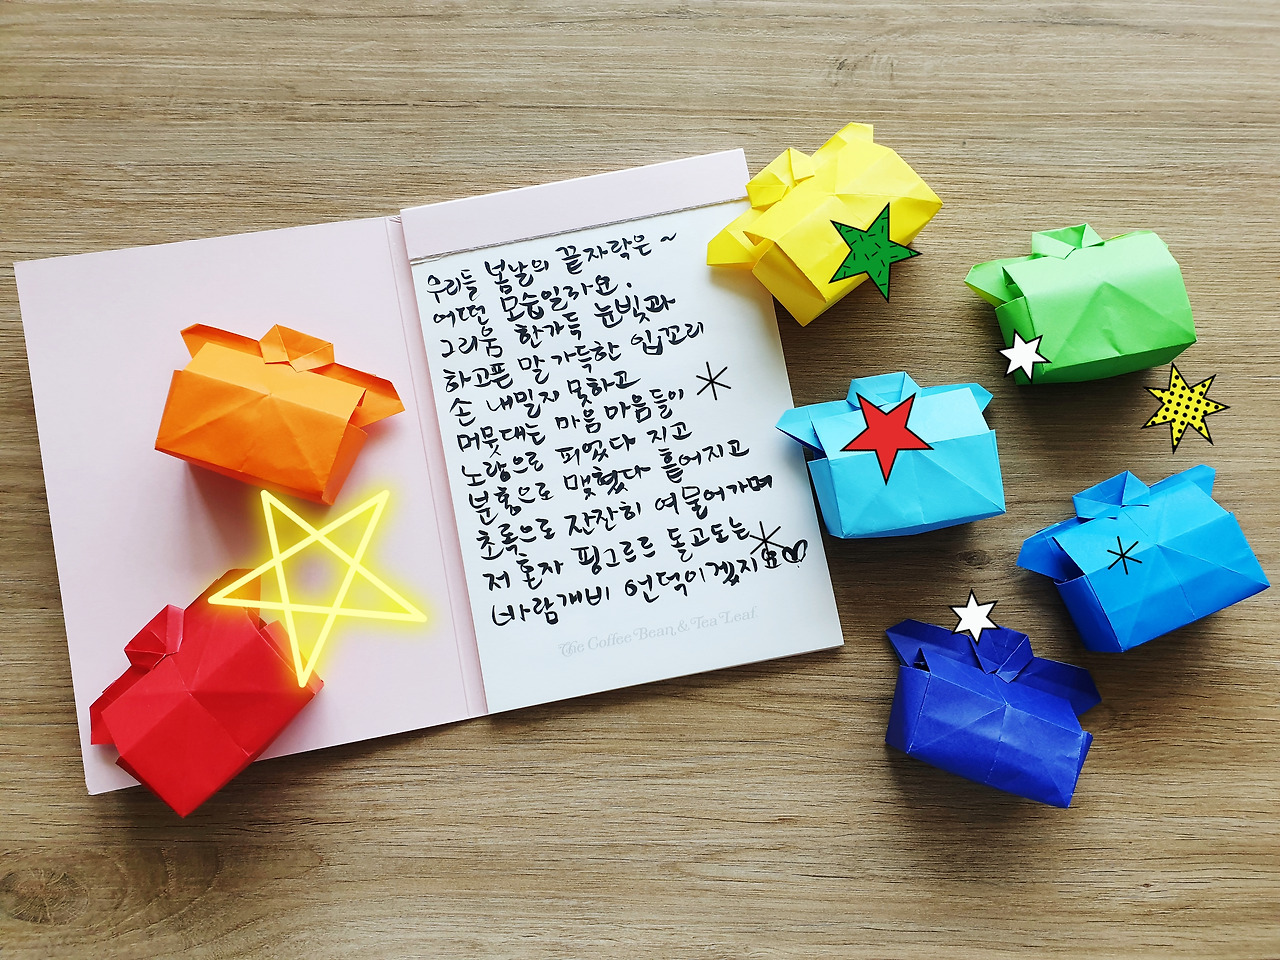 우리들 봄날의 끝자락은 ~
어떤 모습일라요.
그리움 한가득 눈빛과
하고픈 말 가득한 입꼬리
손 내밀지 못하고
머뭇대는 마음 마음들이
노랑으로 피었다 지고
분홍으로 맺혔다 흩어지고
초록으로 잔잔히 여물어가며
저 혼자 핑그르르 돌고도는
바람개비 언덕이겠지요♡
The Coffee Bean & Tea Leaf